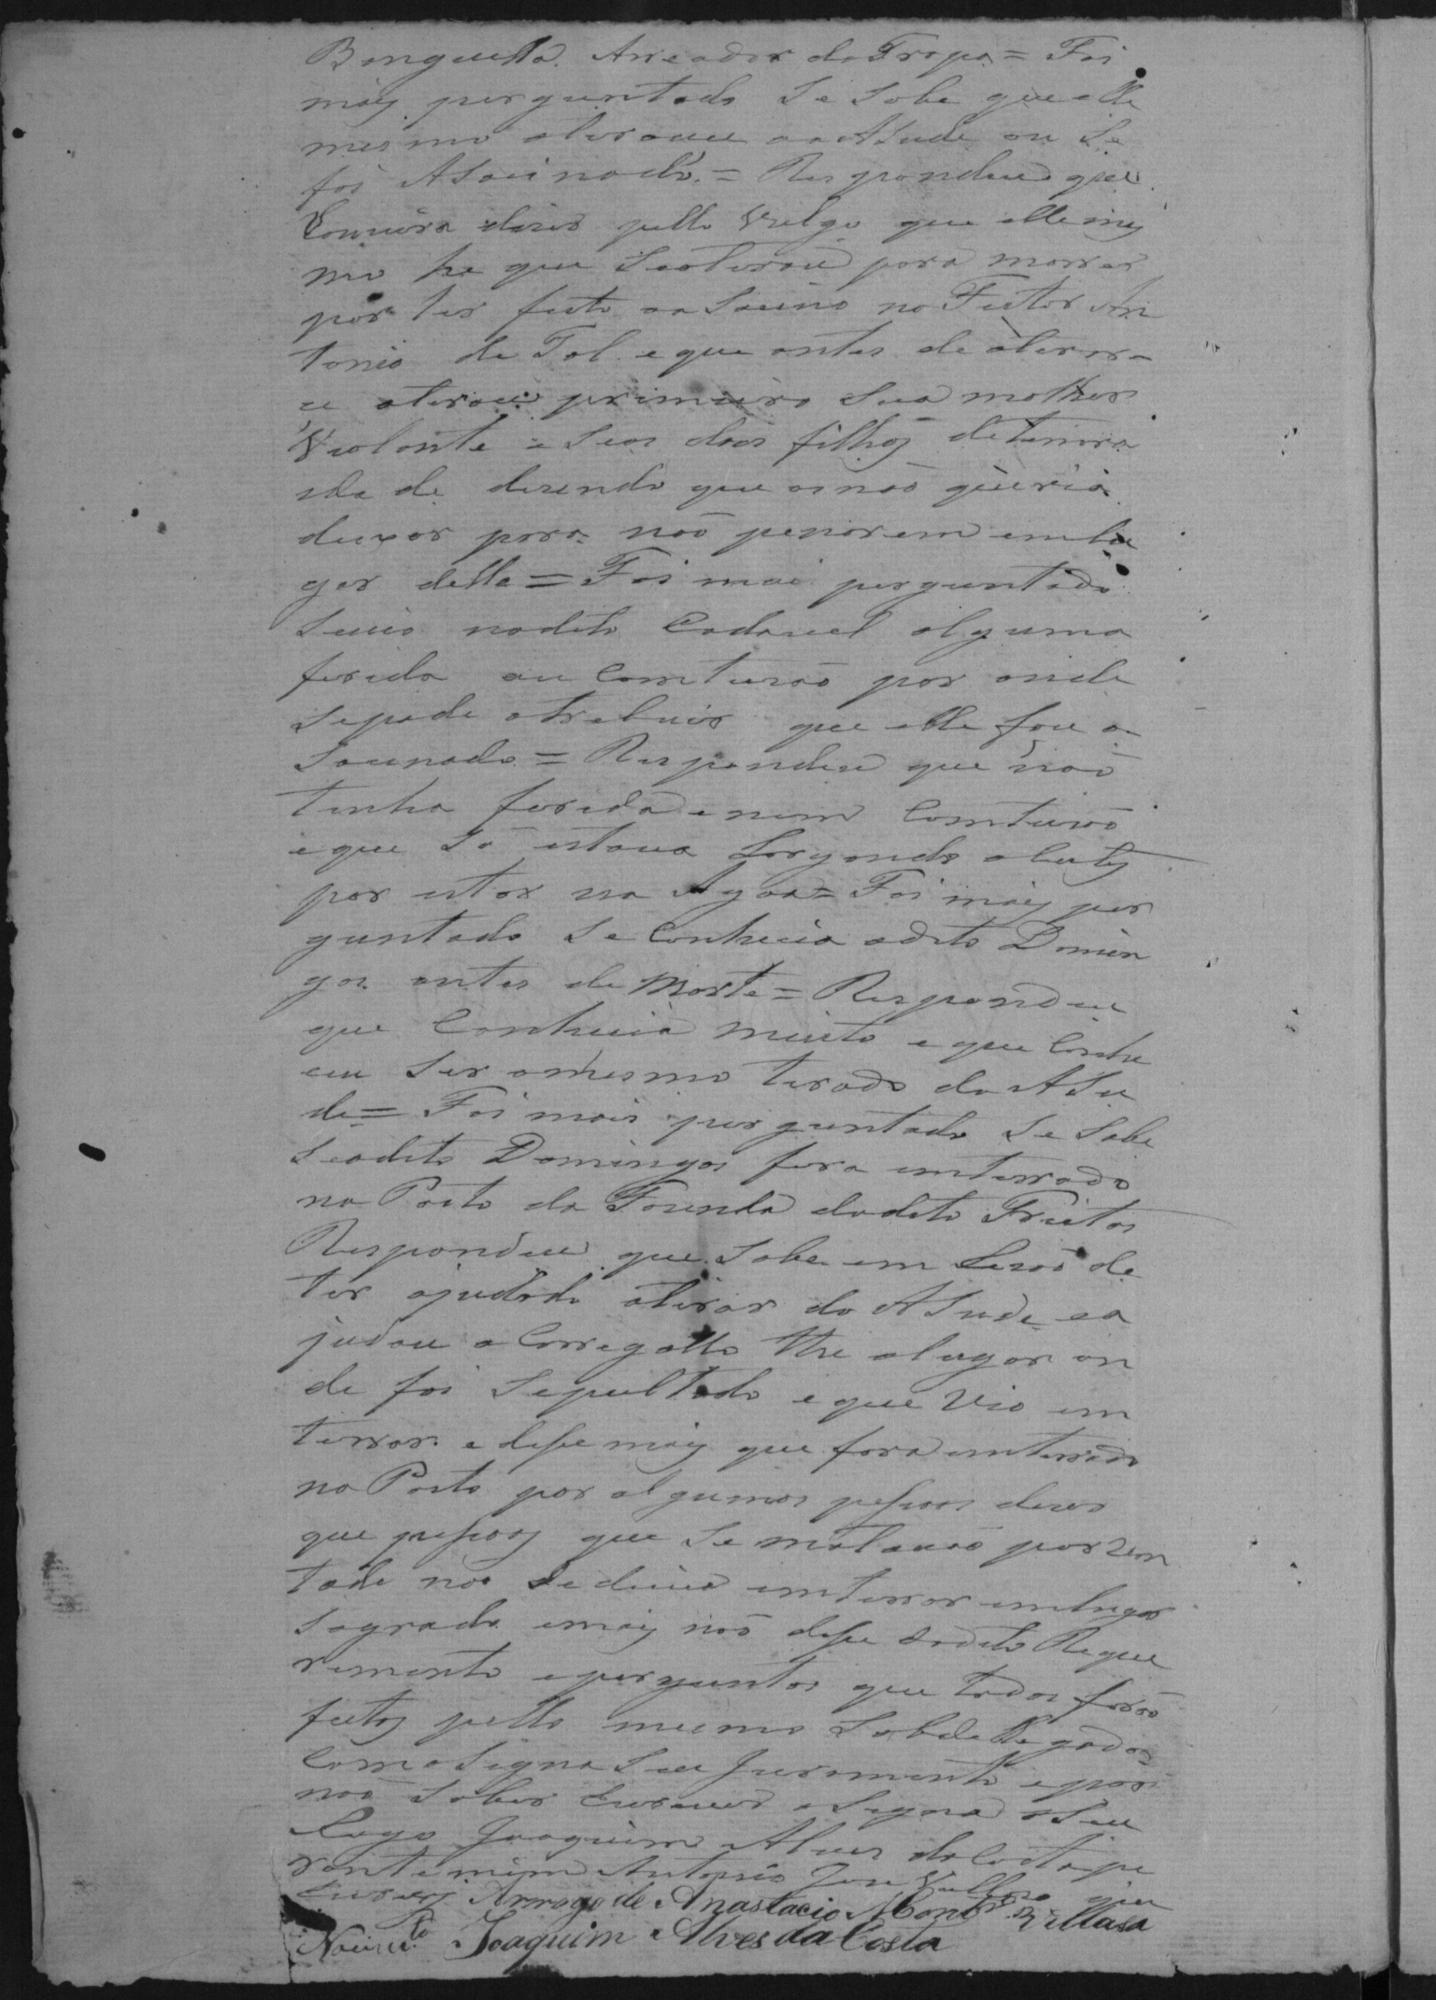 Benguella. Arreador da Tropa = Foi
mais perguntado Se Sabe que elle
mesmo atirouce ao ASude ou Se
foi ASacinado. = Respondeu que
Couvira dizer pello Vulgo que elle mes
mo he que Seatirou para morrer
por ter feito oaSacino no Feitor An
tonio de Tal. e que antes de atirar-
ce atirou primeiro Sua molher
Violante e Seos dois filhos de tenra
idade dizendo que os não queria
deixar para não penarem em lu
gar delle = Foi mais perguntado
Seviu nodito Cadavel alguma
ferida ou Comtuzão por onde
Sepode atrebuir que elle fou a-
Sacinado = Respondeu que não
tinha ferida e nem Comtuzão
e que Só estava
por estar na Agoa = Foi mais per
guntado Se Conhecia odito Domin
gos antes da Morte = Respondeu
que Conhecia muito e que Conhe
ceu Ser omesmo tirado do ASu
de = Foi mais perguntado Se Sabe
Seodito Domingos fora emterrado
no Pasto da Fazenda dodito Freitas
Respondeu que Sabe em Rezão de
ter ajudado atirar do ASude ea
judou a Carregallo the olugar on
de foi Sepultado e que Vio em
terrar. e diçe mais que fora emterrado
no Pasto por algumas peçoas dizer
que peçoas que Se matavão por von
tade não Se devia emterrar em lugar
Sagrado emais não diçe dodito Reque
rimento eperguntas que todas forão
feitas pello mesmo Sobdellegado
Com aSigna Seu Juramento e por
não Saber Escrever aSigna aSeu
Rogo Joaquim Alves da Costa pe
rante mim Antonio Jose que
Escrevi Arrogo de Anastacio
Joaquim Alves da Costa